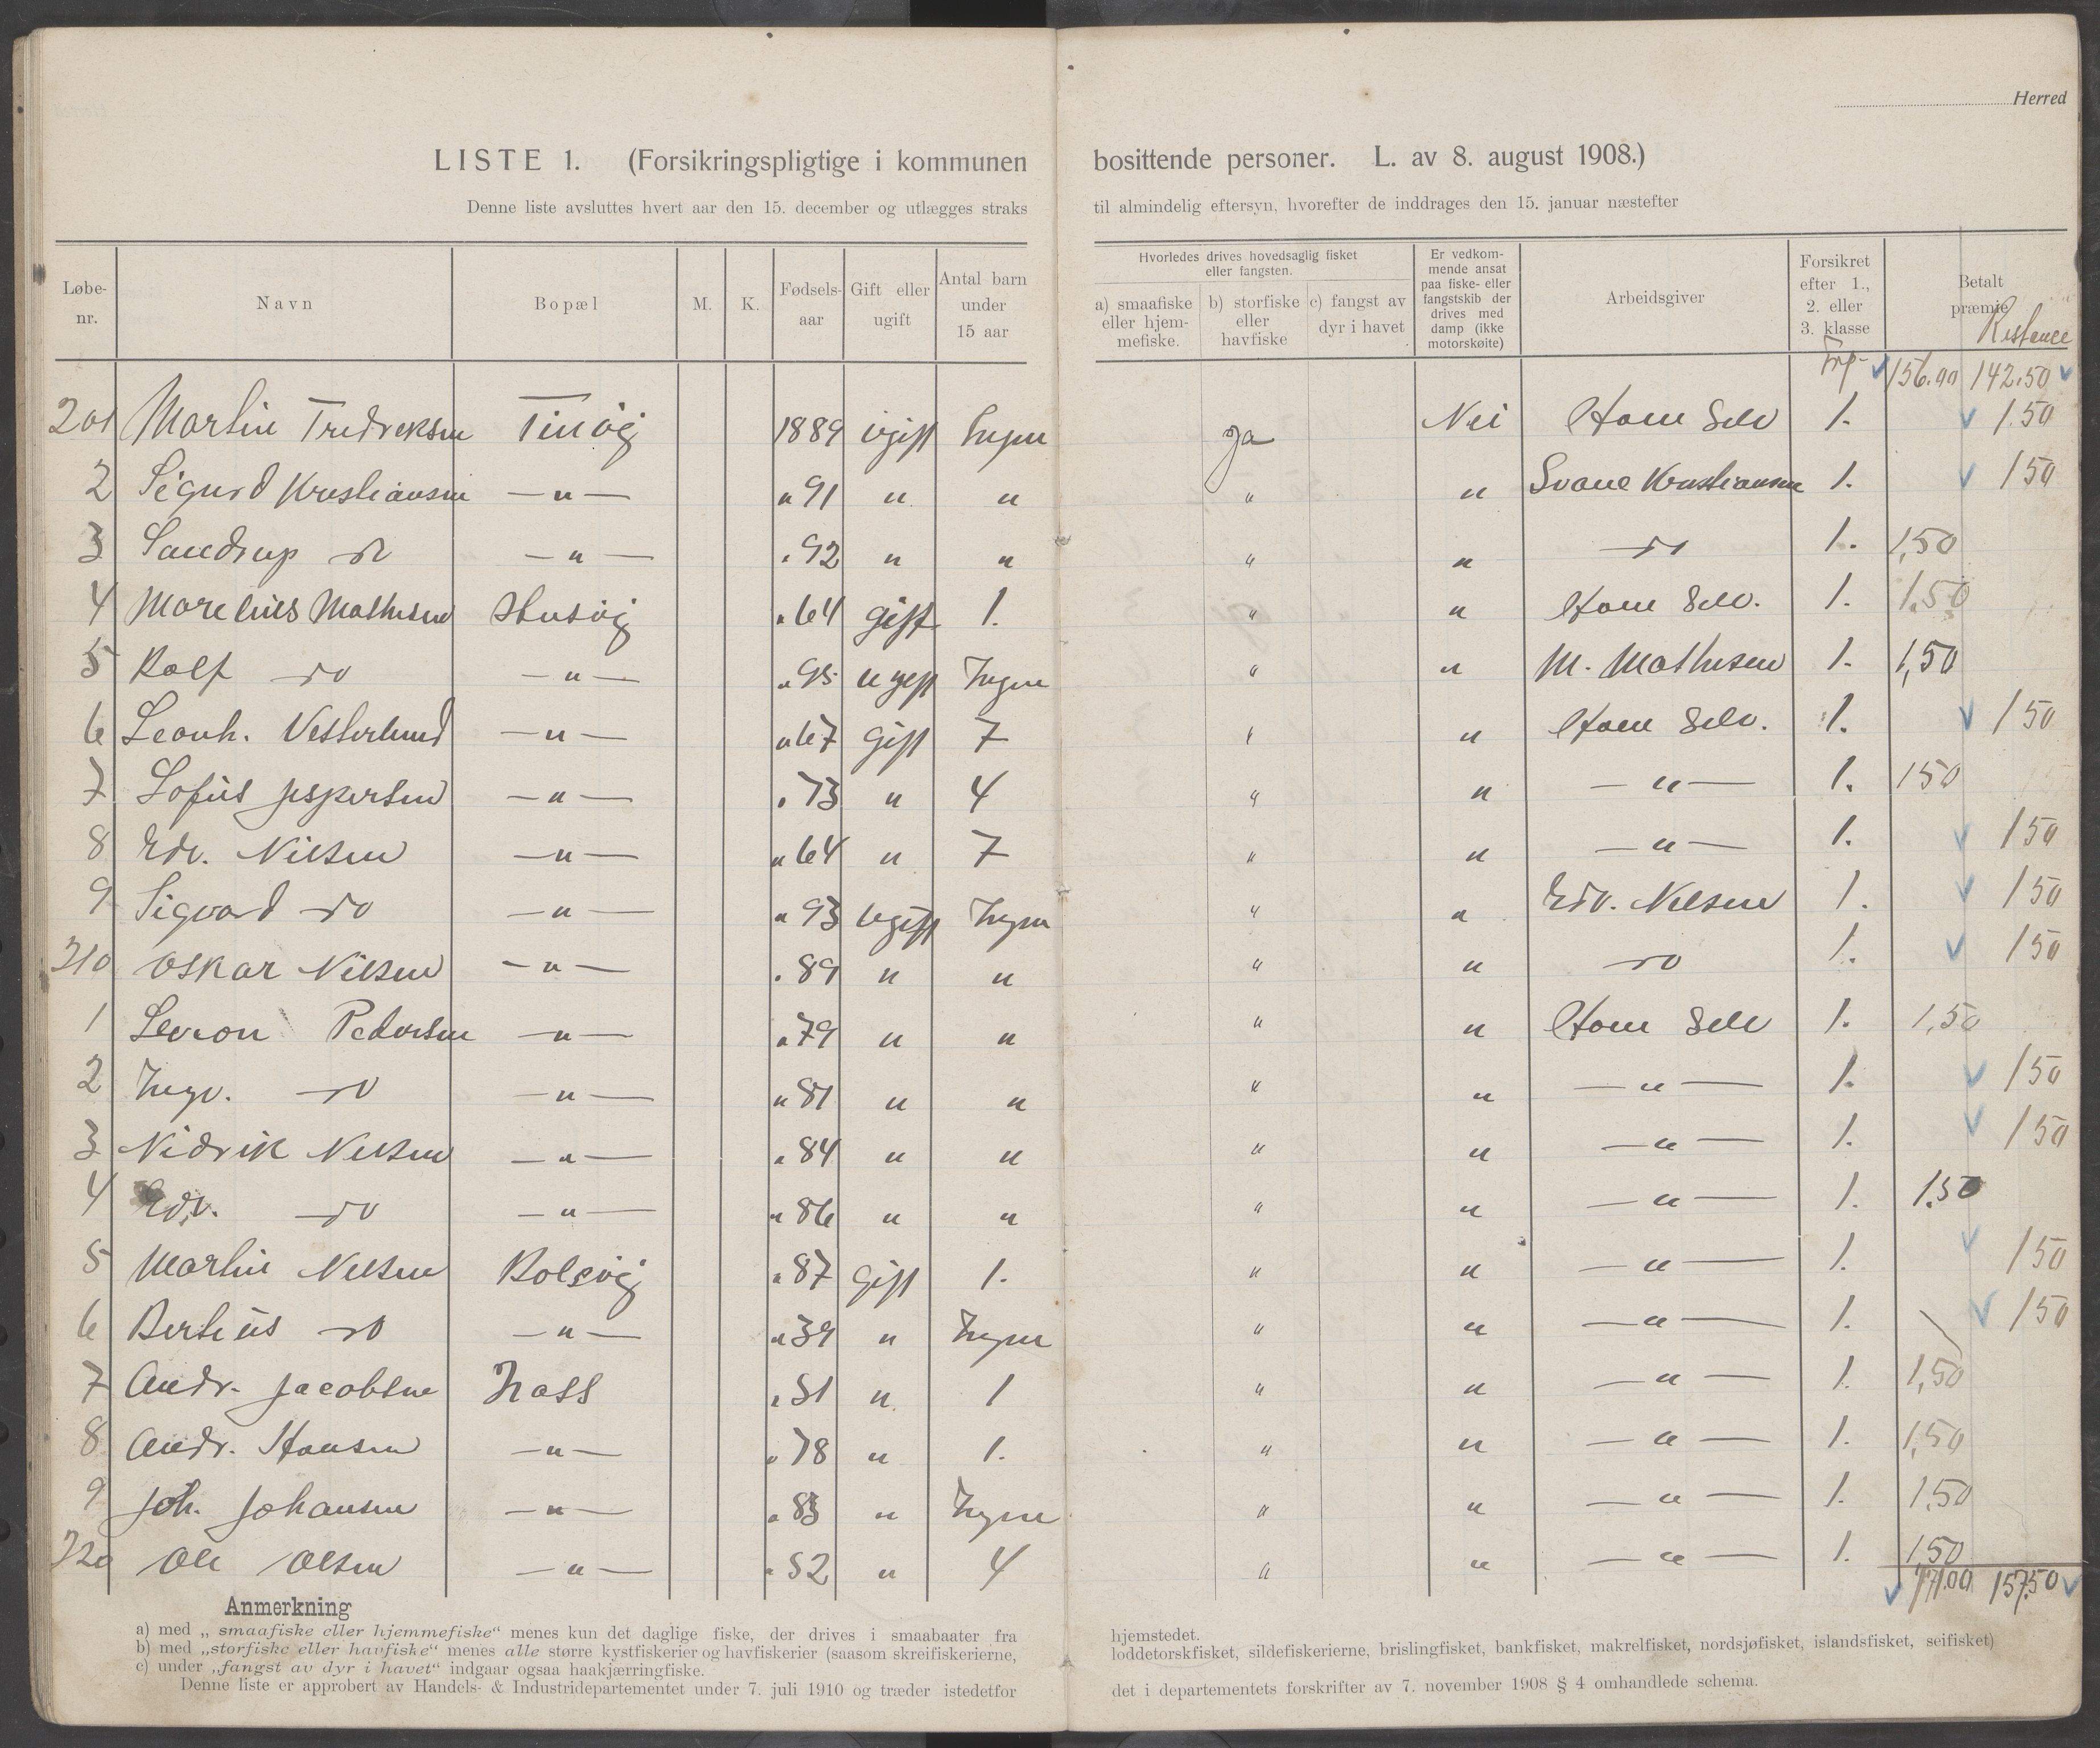 Herred
LISTE 1. (Forsikringspligtige i kommunen bosittende personer. L. av 8. august 1908.)
Denne liste avsluttes hvert aar den 15. december og utlægges straks til almindelig eftersyn, hvorefter de inddrages den 15. januar næstefter
Løbe-nr. Navn Bopæl M. K. Fødsels-aar Gift eller ugift Antal barn under 15 aar Hvorledes drives hovedsaglig fisket eller fangsten. a) smaafiske eller hjem-mefiske. b) storfiske eller havfiske c) fangst av dyr i havet Er vedkom-mende ansat paa fiske- eller fangstskib der drives med damp (ikke motorskøite) Arbeidsgiver Forsikret efter 1., 2. eller 3. klasse Betalt præmie Restance
156.00 142.50
201 Martin Fredreksen 1889 ugift Ingen Ja Nei Ham Selv 1. 1.50
2 Sigurd Kristiansen — " — " 91 " " " " Svane Kristiansen 1. 150
3 Sandrup do — " — " 92 " " " " do 1. 1,50
4 Marelius Mathisen Husvig " 64 gift 1. " " Ham Selv. 1. 1.50
5 Rolf do — " — " 95 ugift Ingen " " M. Mathisen 1. 1,50
6 Leonh. Vesterlund — " — " 67 gift 7 " " Ham Selv. 1. 150
7 Sofus Jespersen — " — " 73 " 4 " " — " — 1. 150
8 Edv. Nilsen — " — " 64 " 7 " " — " — 1. 150
9 Sigvard do — " — " 93 ugift Ingen " " Edv. Nilsen 1. 150
210 Oskar Nilsen — " — " 89 " " " " do 1. 150
1 Pedersen — " — " 79 " " " " Ham Selv 1. 1,50
2 Ingv. do — " — " 81 " " " " — " — 1. 150
3 Nidrik Nilsen — " — " 84 " " " " — " — 1. 150
4 Edv. do — " — " 86 " " " " — " — 1. 1.50
5 Martin Nilsen Bolsvig " 87 gift 1. " " — " — 1. 150
6 Berteus do — " — " 39 " Ingen " " — " — 1. 150
7 Andr. Jacobsen " 51 " 1 " " — " — 1. 1,50
8 Andr. Hansen — " — " 78 " 1. " " — " — 1. 1,50
9 Joh. Johansen — " — " 83 " Ingen " " — " — 1. 1,50
220 Ole Olsen — " — " 52 " 4 " " — " — 1. 1,50
171.00 157.50
Anmerkning
a) med „smaafiske eller hjemmefiske“ menes kun det daglige fiske, der drives i smaabaater fra hjemstedet.
b) med „storfiske eller havfiske“ menes alle større kystfiskerier og havfiskerier (saasom skreifiskerierne, loddetorskfisket, sildefiskerierne, brislingfisket, bankfisket, makrelfisket, nordsjøfisket, islandsfisket, seifisket)
c) under „fangst av dyr i havet“ indgaar ogsaa haakjærringfiske.
Denne liste er approbert av Handels- & Industridepartementet under 7. juli 1910 og træder istedetfor det i departementets forskrifter av 7. november 1908 § 4 omhandlede schema.